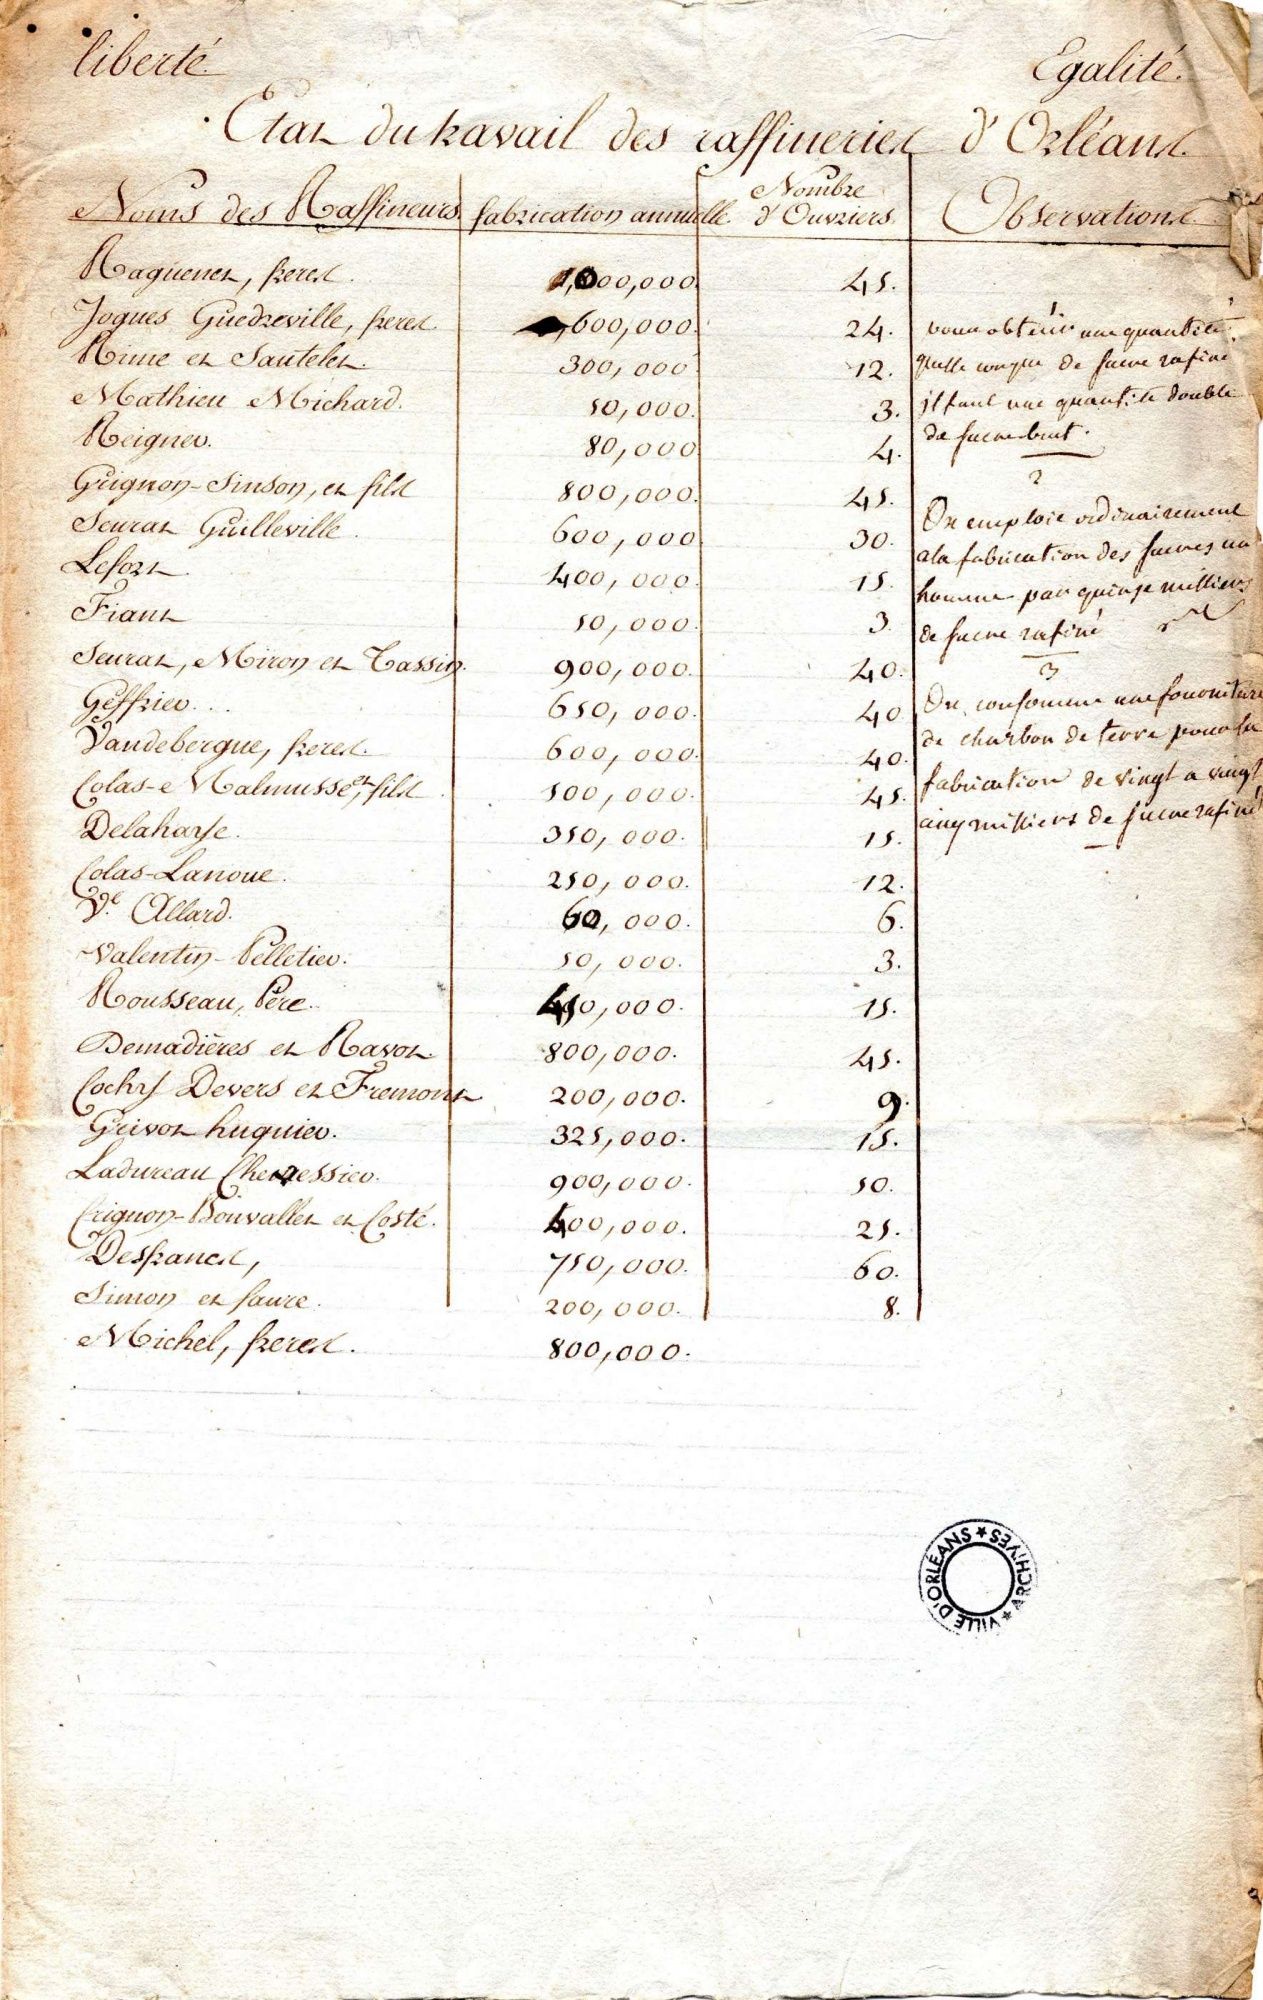 liberté. Egalité.
Etat du travail des raffineries d'Orléans.
Noms des Raffineurs. fabrication annuelle. Nombre d'Ouvriers. Observations.
Raguenet, freres. 1,000,000. 45.
Jogues Guedreville, freres. 600,000. 24.
Rime et Sautelet. 300,000 12.
Mathieu Michard. 50,000. 3.
Reigner. 80,000 4.
Grignon-Sinson, et fils 800,000. 45.
Seurat Guilleville. 600,000 30.
Lefort 400,000. 15.
Fiant 50,000. 3.
Seurat, Miron et Tassin. 900,000. 40.
Geffrier... 650,000. 40
Vandebergue, freres. 600,000. 40.
Colas-e Malmusse, et fils 500,000. 45.
Delahaye. 350,000. 15.
Colas-Lanoue. 250,000. 12.
Ve. Allard. 60,000. 6.
Valentin-Pelletier. 50,000. 3.
Rousseau, Pere. 450,000. 15.
Demadières et Ravot. 800,000. 45.
Cochy Devers et Fremont 200,000. 9.
Grivot huquier. 325,000. 15.
Ladureau Chenessier. 900,000. 50.
Crignon-Bonvallet et Costé. 400,000. 25.
Desfrancs, 750,000. 60.
Simon et faure. 200,000. 8.
Michel, freres. 800,000.
1
pour obtenir une quantité
quelle conque de sucre rafiné
il faut une quantité double
de sucre brut.
2
On emploie ordinairement
a la fabrication des sucres un
homme par quinze milliers
de sucre rafiné
3
On consomme une fourniture
de charbon de terre pour la
fabrication de vingt a vingt
cinq milliers de sucre rafiné
VILLE D'ORLÉANS ★ ARCHIVES ★